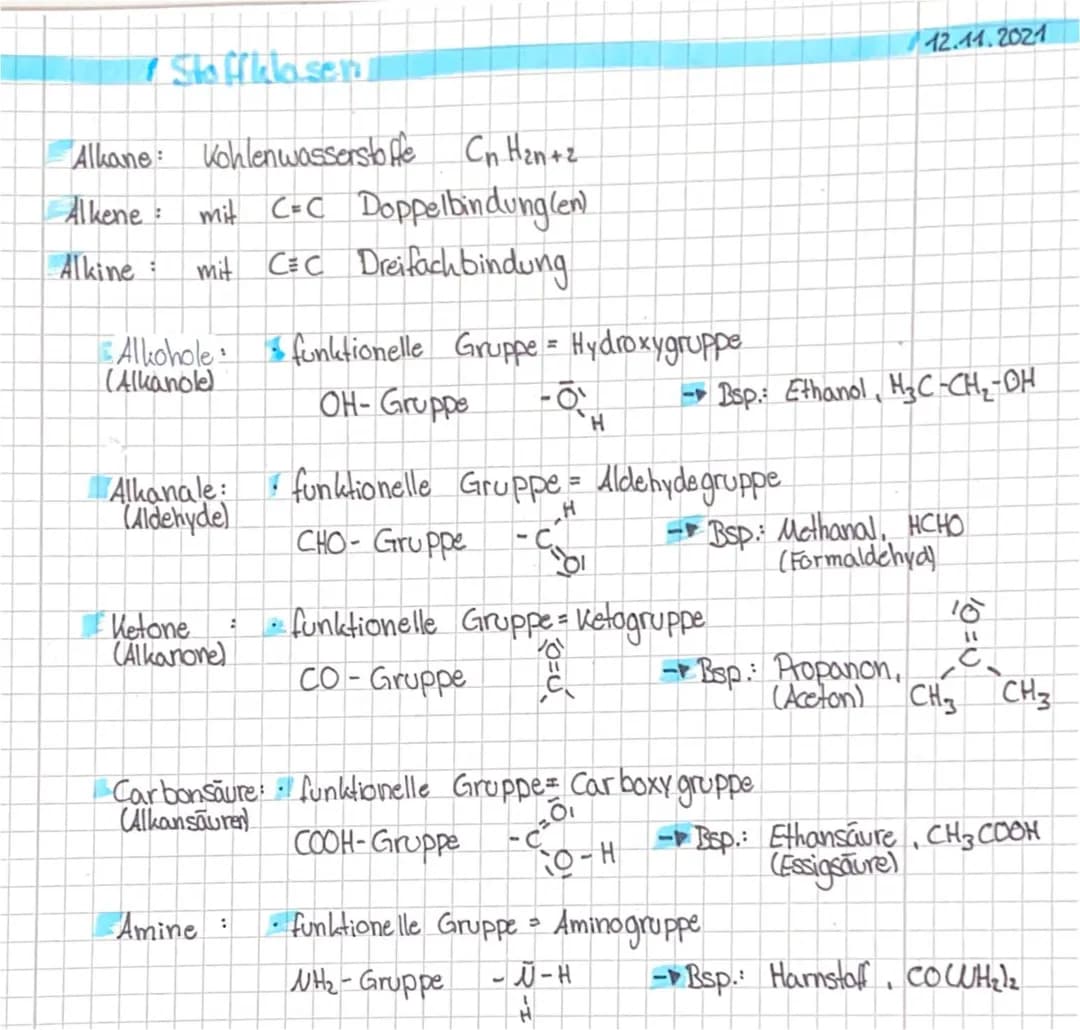 12.11.2021
Stoffklasen
Alkane: Kohlenwasserstoffe CnH2n+2
Alkene: mit C=C Doppelbindung(en)
Alkine: mit C≡C Dreifachbindung
Alkohole: • funktionelle Gruppe = Hydroxygruppe
(Alkanole)
OH-Gruppe -O H → Bsp.: Ethanol, H3C-CH2-OH
Alkanale: • funktionelle Gruppe = Aldehydegruppe
(Aldehyde)
CHO-Gruppe -C H O → Bsp.: Methanal, HCHO
(Formaldehyd)
Ketone : • funktionelle Gruppe = Ketogruppe
(Alkanone)
CO-Gruppe O=C → Bsp.: Propanon, O=C CH3 CH3
(Aceton)
Carbonsäure: • funktionelle Gruppe = Carboxygruppe
(Alkansäuren)
COOH-Gruppe -C=O O-H → Bsp.: Ethansäure, CH3COOH
(Essigsäure)
Amine : • funktionelle Gruppe = Aminogruppe
NH2-Gruppe -N-H H → Bsp.: Harnstoff, CO(NH2)2